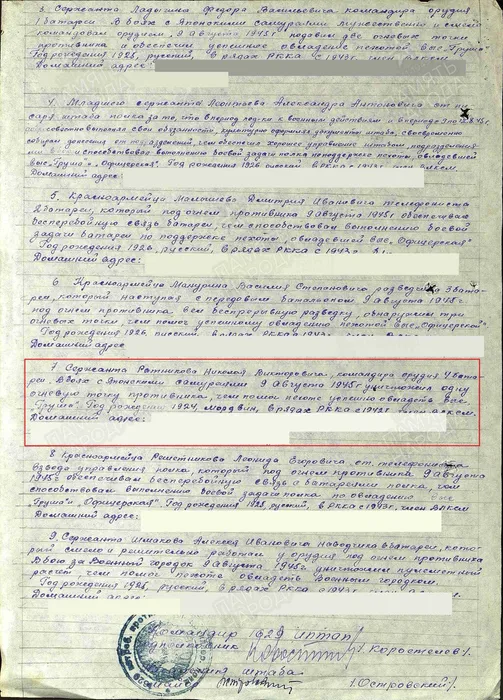 3. Сержанта Ладыгина Федора Васильевича командира орудия
1 батареи. В боях с Японскими самураями мужественно и смело
командовал орудием, 9 августа 1945г подавил две огневые точки
противника и обеспечил успешное овладение пехотой выс. "Груша"
Год рождения 1925, русский, в рядах РККА с 1943г. член ВЛКСМ.
Домашний адрес:
4. Младшего сержанта Леонтьева Александра Антоновича ст. пи
саря штаба полка за то, что в период
добросовестно выполнял свои обязанности, культурно оформлял документы штаба, своевременно
собирал донесения от подразделений, чем обеспечил хорошее управление штабом, подразделения
ми и способствовал выполнению боевой задачи полка по поддержке пехоты, овладевшей
выс. "Груша", "Офицерская". Год рождения 1926
Домашний адрес:
5. Красноармейца Малышева Дмитрия Ивановича телефониста
2 батареи, который под огнем противника 9 августа 1945г обеспечивал
бесперебойную связь батареи, чем способствовал выполнению боевой
задачи батареи по поддержке пехоты, овладевшей выс. "Офицерская"
Год рождения 1926, русский, в рядах РККА с 1943г.
Домашний адрес:
6. Красноармейца Манурина Василия Степановича разведчика 3 бата-
реи, который наступая с передовым батальоном 9 августа 1945г.
под огнем противника вел беспрерывную разведку, обнаружил три
огневых точки чем помог успешному овладению пехотой выс. "Офицерской".
Год рождения 1926, русский, в рядах РККА с 1943г.
Домашний адрес
7. Сержанта Ратникова Николая Викторовича, командира орудия 4 бата
реи. В боях с Японскими самураями 9 августа 1945г уничтожил одну
огневую точку противника, чем помог пехоте успешно овладеть выс.
"Груша". Год рождения 1924, мордвин, в рядах РККА с 1942г. член ВЛКСМ.
Домашний адрес:
8. Красноармейца Решетникова Леонида Егоровича, ст. телефониста
взвода управления полка, который под огнем противника 9 августа
1945г обеспечивал бесперебойную связь с батареями полка, чем
способствовал выполнению боевой задачи полка по овладению выс
"Груша" и "Офицерская". Год рождения 1925 русский, в РККА с 1943г. член ВЛКСМ
Домашний адрес:
9. Сержанта Шмакова Алексея Ивановича наводчика батареи, кото-
рый смело и решительно работал у орудия под огнем противника
В бою за Военный городок 9 августа 1945г. уничтожил пулеметный
расчет чем помог пехоте овладеть Военным городком.
Год рождения 1926, русский, в рядах РККА с 1943г.
Домашний адрес:
Командир 1629 ИПТАП
подполковник /Коростелев/
штаба
/Островский/